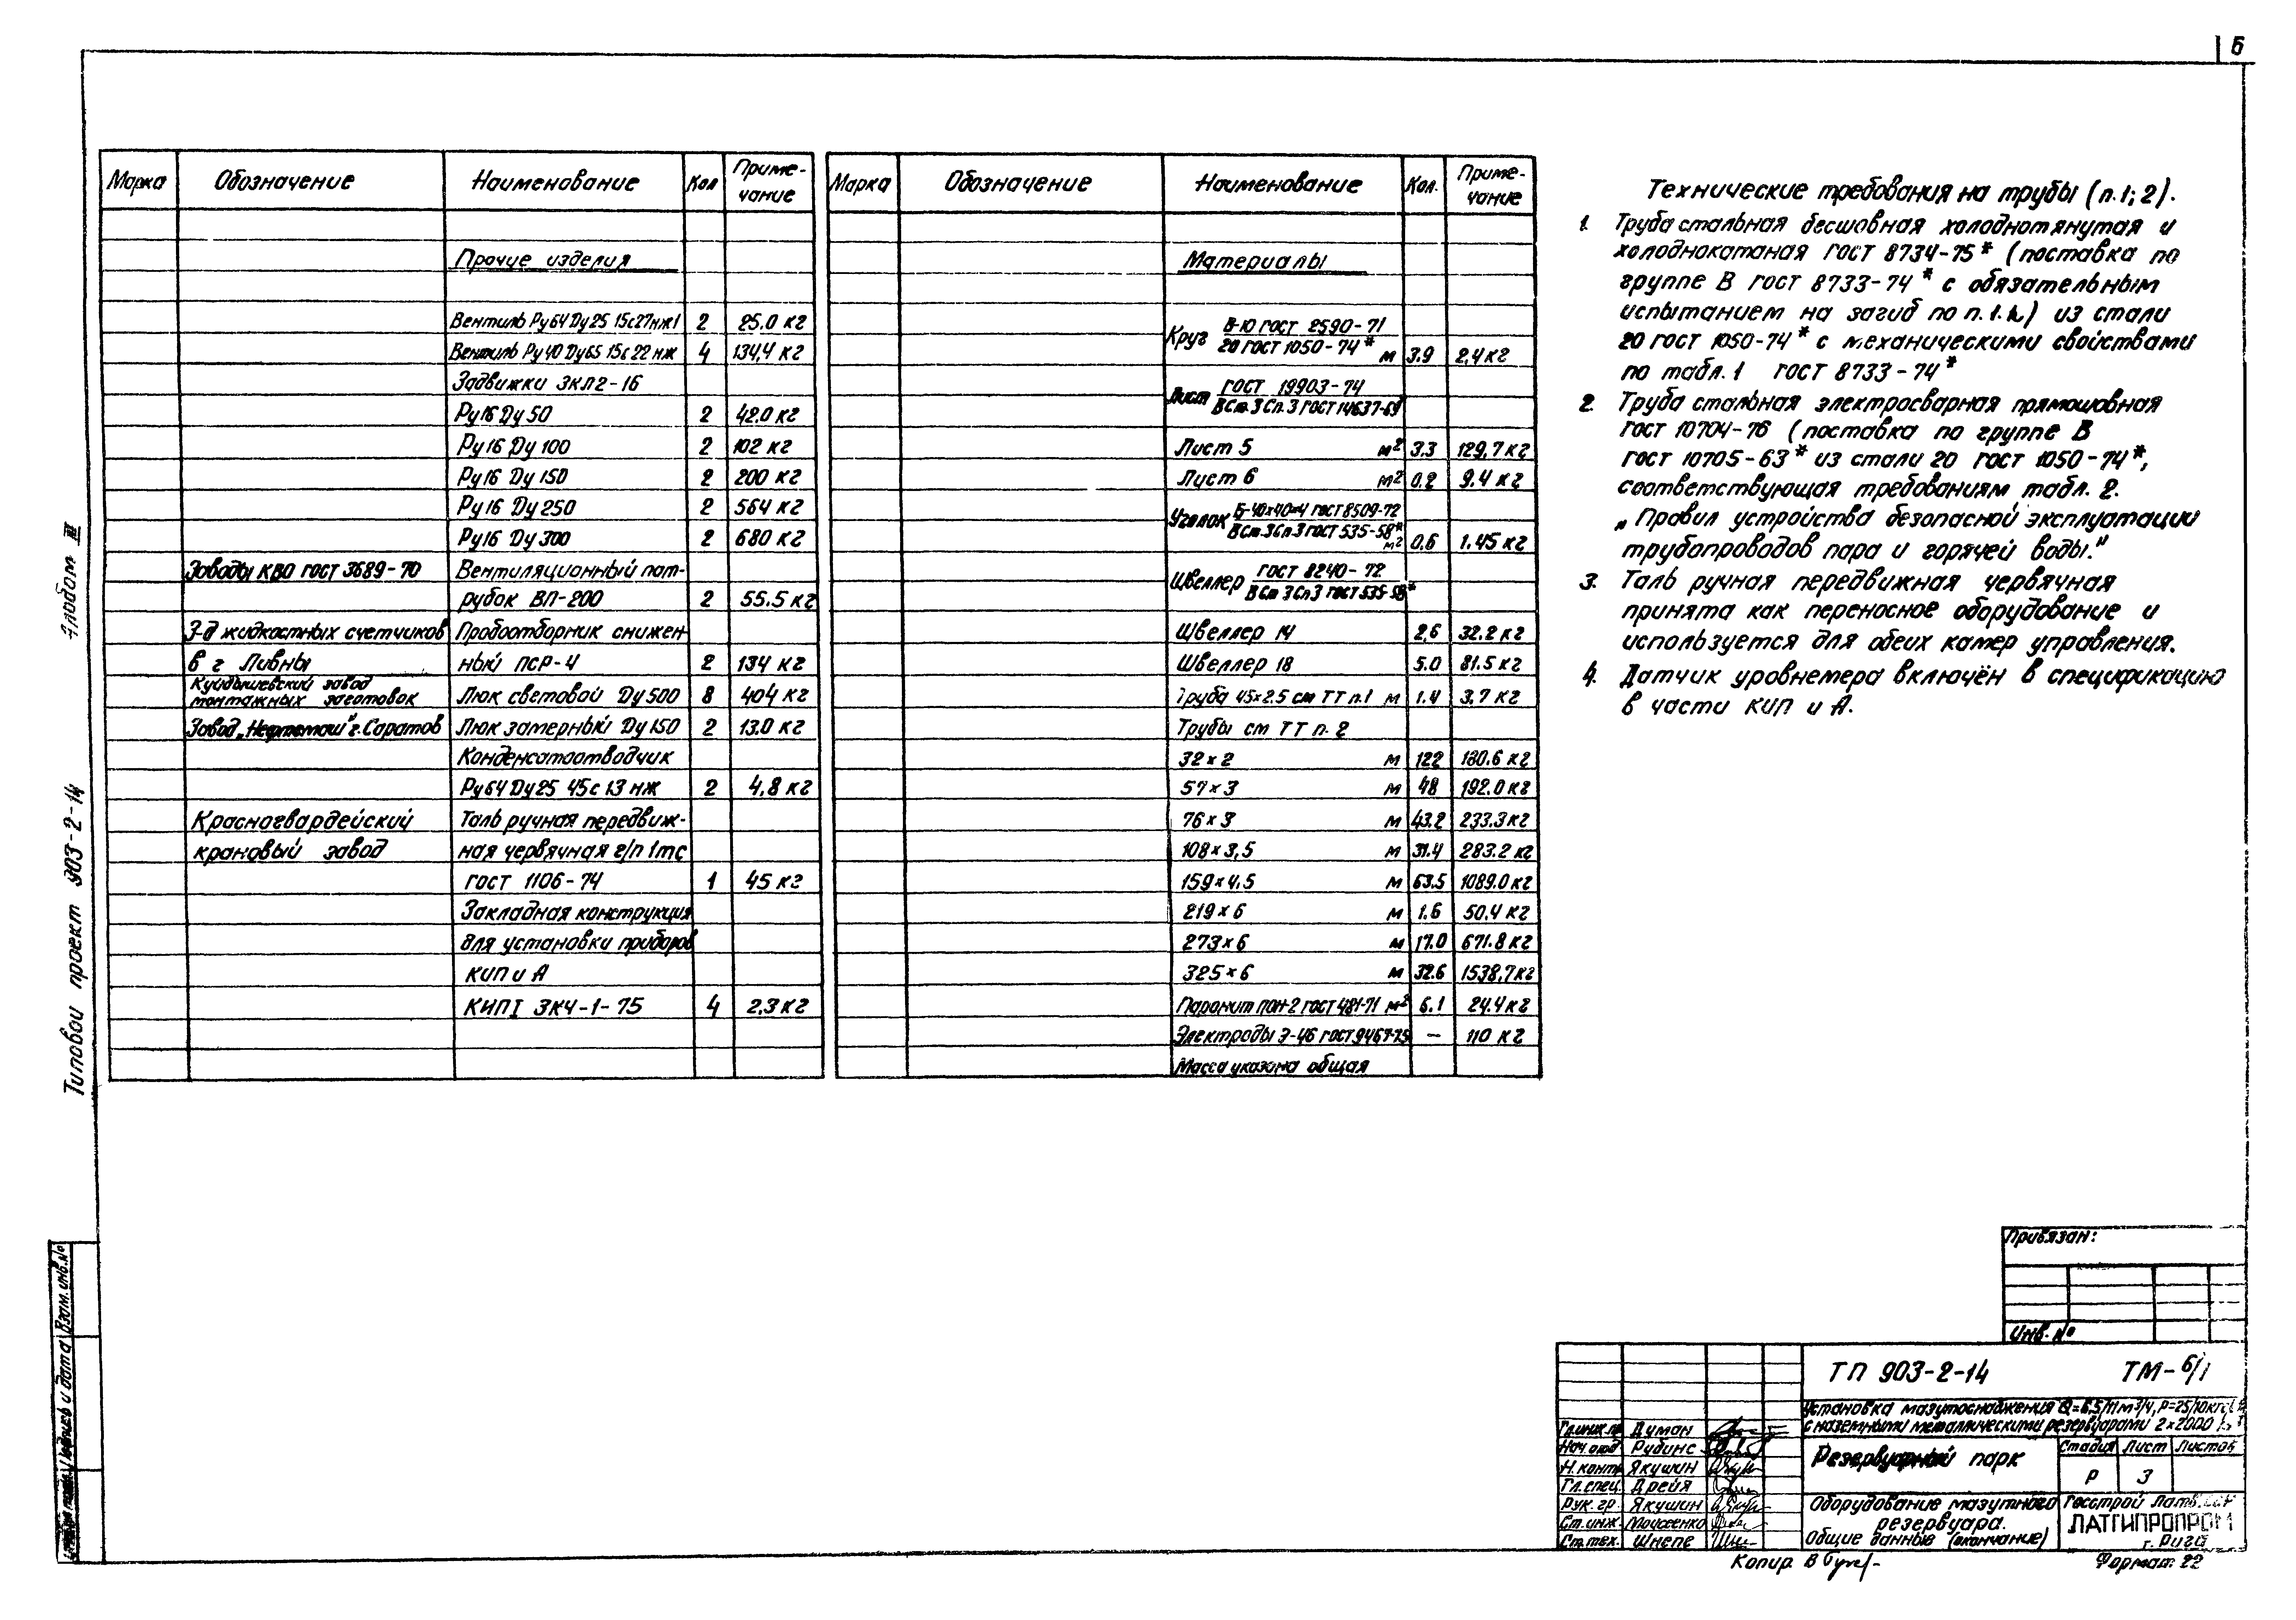 6
Марка Обозначение Наименование Кол Приме-
чание
Прочие изделия
Вентиль Ру64 Ду25 15с27нж1 2 25.0 кг
Вентиль Ру40 Ду65 15с22нж 4 134,4 кг
Задвижки ЗКЛ2-16
Ру16 Ду 50 2 42.0 кг
Ру16 Ду 100 2 102 кг
Ру16 Ду 150 2 200 кг
Ру16 Ду 250 2 564 кг
Ру16 Ду 300 2 680 кг
Заводы КВО ГОСТ 3689-70 Вентиляционный пат-
рубок ВП-200 2 55.5 кг
З-д жидкостных счетчиков Пробоотборник снижен
в г Ливны ный ПСР-4 2 134 кг
Куйбышевский завод
монтажных заготовок Люк световой Ду 500 8 404 кг
Завод „Нефтемаш" г. Саратов Люк замерный Ду 150 2 13.0 кг
Конденсатоотводчик
Ру64 Ду25 45с 13 нж 2 4,8 кг
Красногвардейский Таль ручная передвиж-
крановый завод ная червячная г/п 1тс
ГОСТ 1106-74 1 45 кг
Закладная конструкция
для установки приборов
КИП и А
КИП I ЗК4-1-75 4 2,3 кг
Марка Обозначение Наименование Кол. Приме-
чание
Материалы
Круг В-10 ГОСТ 2590-71
20 ГОСТ 1050-74* м 3.9 2,4 кг
Лист ГОСТ 19903-74
ВСт.3Сп.3 ГОСТ 14637-69
Лист 5 м² 3.3 129,7 кг
Лист 6 м² 0.2 9.4 кг
Уголок Б-40×40×4 ГОСТ 8509-72
ВСт.3Сп.3 ГОСТ 535-58*
м² 0,6 1.45 кг
Швеллер ГОСТ 8240-72
ВСт 3Сп3 ГОСТ 535-58*
Швеллер 14 2,6 32.2 кг
Швеллер 18 5.0 81.5 кг
Труба 45×2.5 см ТТ п.1 м 1.4 3,7 кг
Трубы см ТТ п. 2
32×2 м 122 180.6 кг
57×3 м 48 192.0 кг
76×3 м 43.2 233.3 кг
108×3,5 м 31.4 283.2 кг
159×4,5 м 63.5 1089.0 кг
219×6 м 1.6 50.4 кг
273×6 м 17.0 671.8 кг
325×6 м 32.6 1538,7 кг
Паронит ПОН-2 ГОСТ 481-71 м² 6.1 24.4 кг
Электроды Э-46 ГОСТ 9467-75 — 110 кг
Масса указана общая
Технические требования на трубы (п.1; 2).
1. Труба стальная бесшовная холоднотянутая и
холоднокатаная ГОСТ 8734-75* (поставка по
группе В ГОСТ 8733-74* с обязательным
испытанием на загиб по п. 1. ) из стали
20 ГОСТ 1050-74* с механическими свойствами
по табл. 1 ГОСТ 8733-74*
2. Труба стальная электросварная прямошовная
ГОСТ 10704-76 (поставка по группе В
ГОСТ 10705-63* из стали 20 ГОСТ 1050-74*,
соответствующая требованиям табл. 2.
„Правил устройства безопасной эксплуатации
трубопроводов пара и горячей воды."
3. Таль ручная передвижная червячная
принята как переносное оборудование и
используется для обеих камер управления.
4. Датчик уровнемера включён в спецификацию
в части КИП и А.
Альбом III
Типовой проект 903-2-14
Взам. инв. №
Подпись и дата
Привязан:
Инв. №
ТП 903-2-14 ТМ-6/1
Установка мазутоснабжения Q=6,5/11м³/ч, Р=25/10кгс/
с наземными металлическими резервуарами 2×2000
Гл.инж.пр Думан
Нач.отд Рубинс
Н.контр Якушин
Гл.спец. Дрейя
Рук. гр. Якушин
Ст.инж. Моисеенко
Ст.тех. Шнепе
Резервуарный парк
Стадия Лист Листов
Р 3
Оборудование мазутного
резервуара.
Общие данные (окончание)
Госстрой Латв.ССР
ЛАТГИПРОПРОМ
г. Рига
Копир.
Формат 22